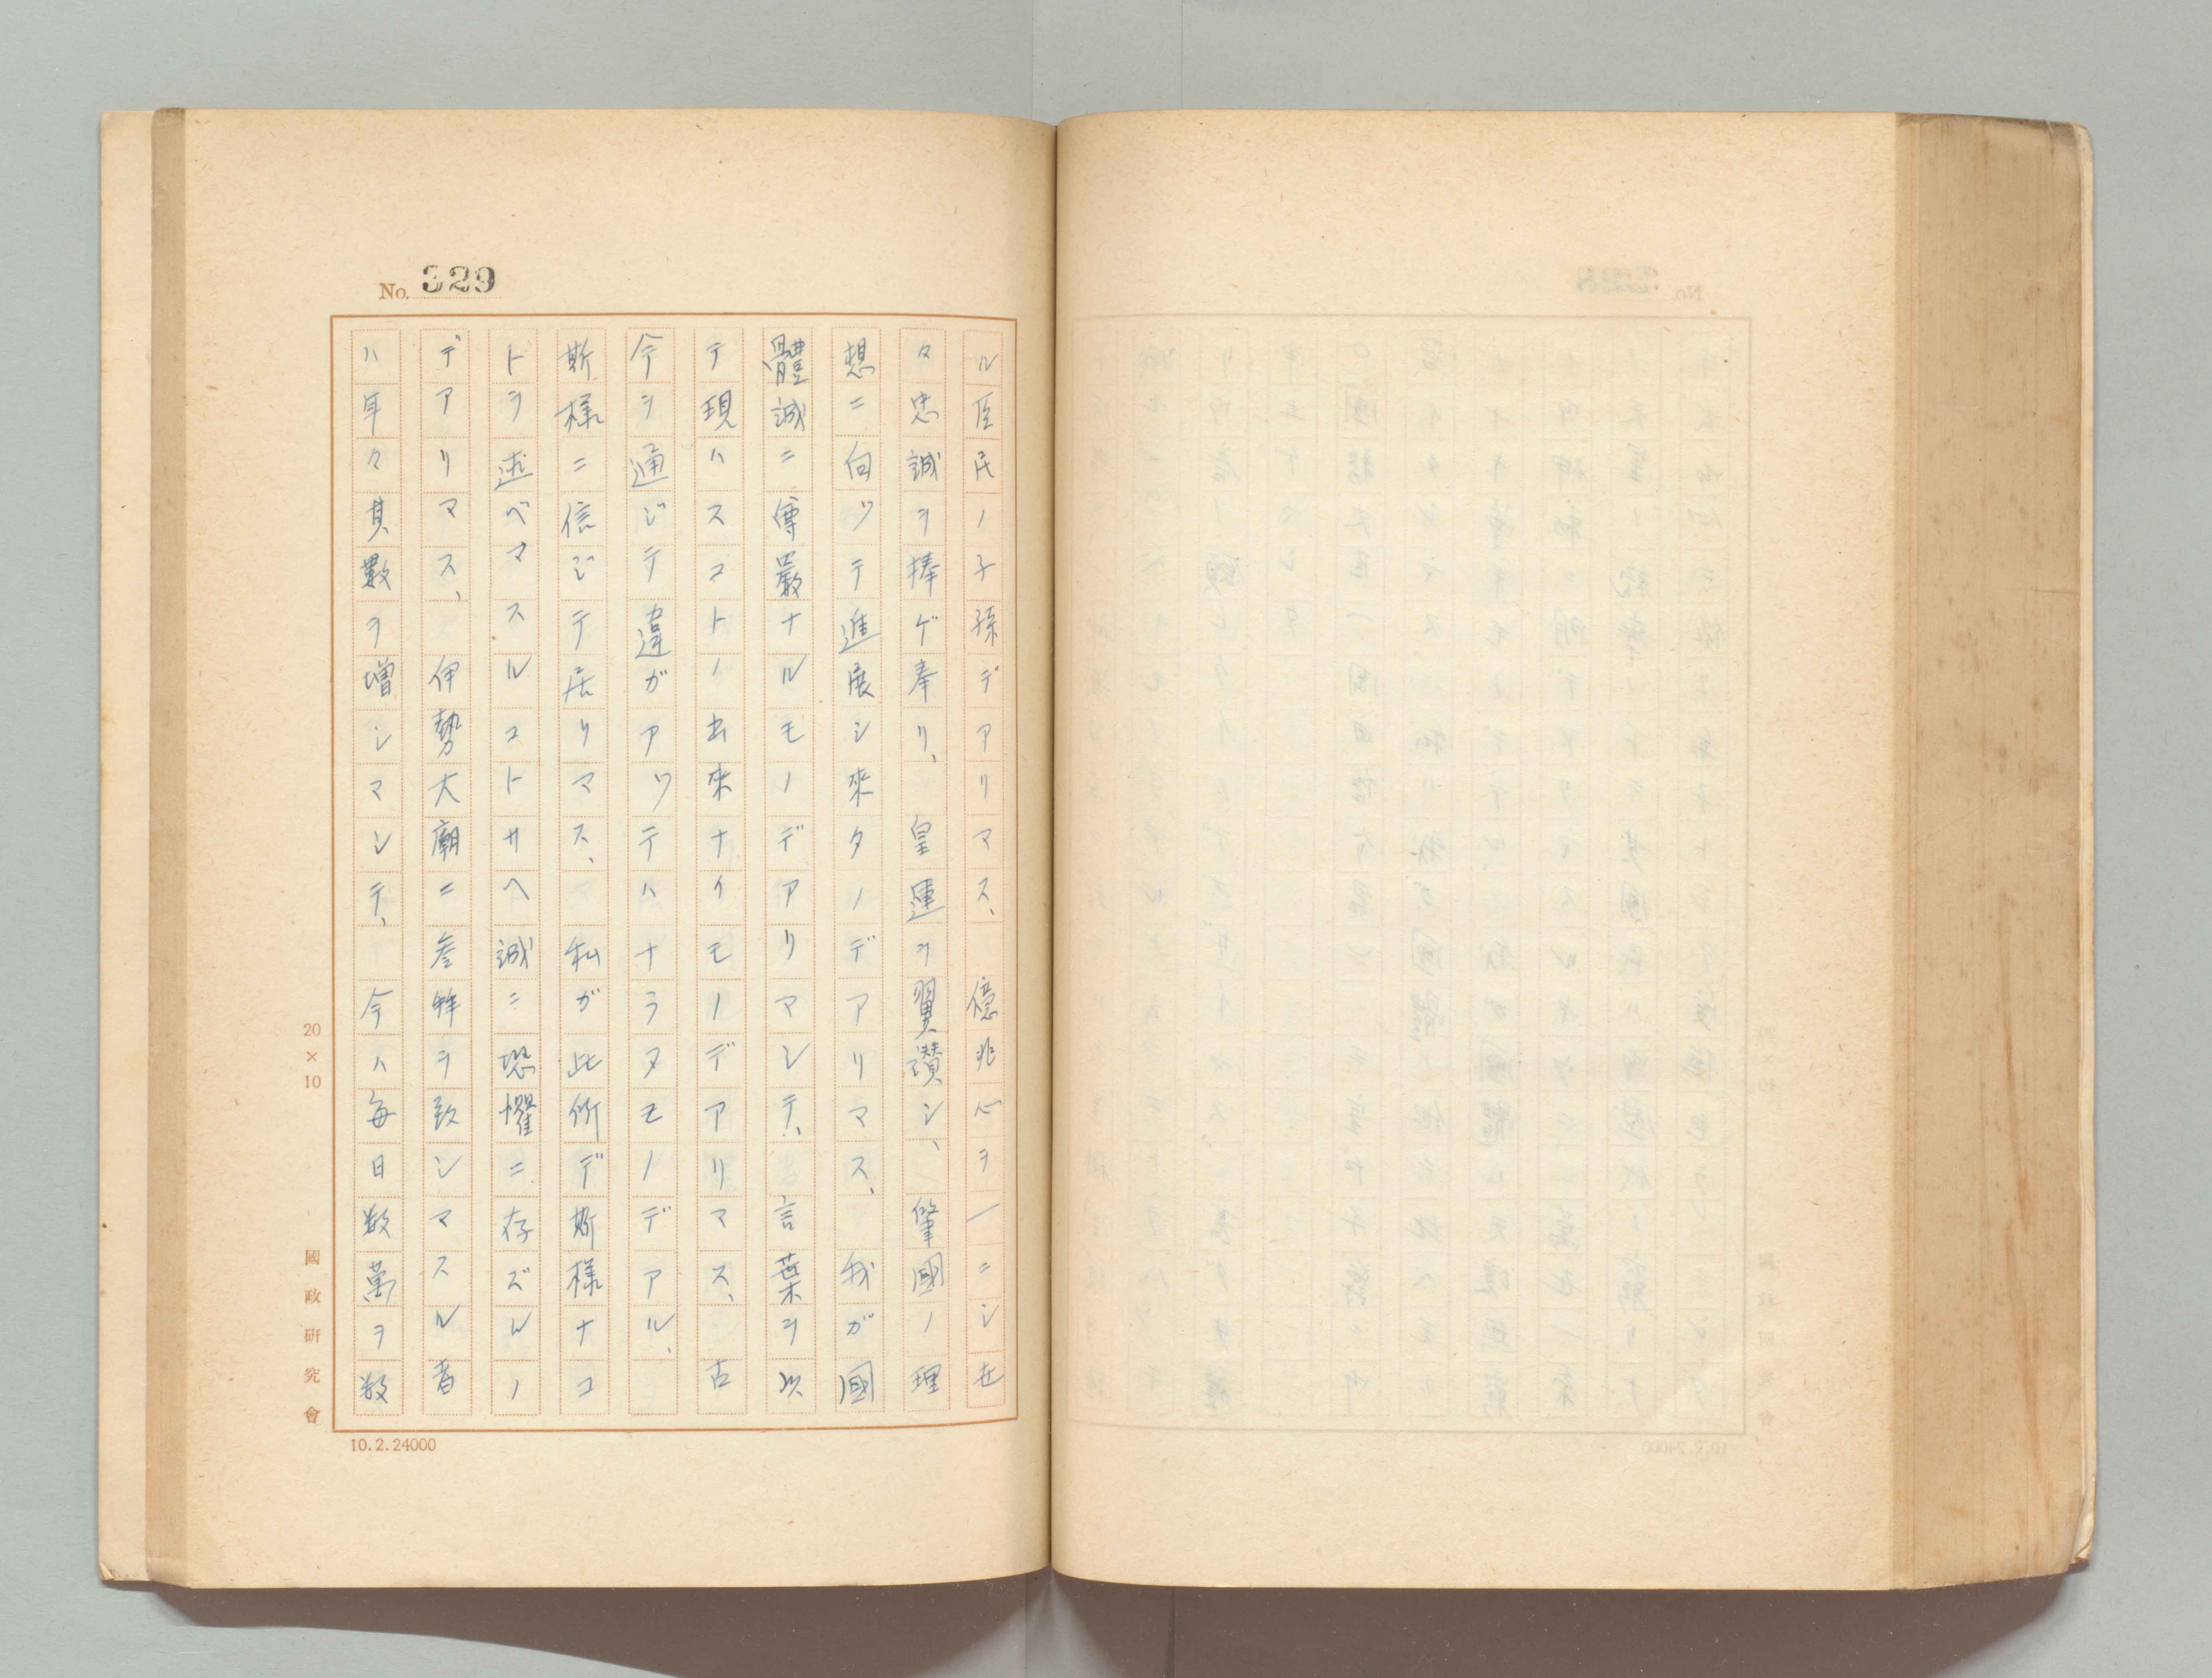 No. 329
ル臣民ノ子孫デアリマス、億兆心ヲ一ニシ世
々忠誠ヲ捧ゲ奉リ、皇運ヲ翼讃シ、肇國ノ理
想ニ向ツテ進展シ來タノデアリマス、我ガ國
體誠ニ尊嚴ナルモノデアリマシテ、言葉ヲ以
テ現ハスコトノ出來ナイモノデアリマス、古
今ヲ通ジテ違ガアツテハナラヌモノデアル、
斯樣ニ信ジテ居リマス、私ガ此所デ斯樣ナコ
トヲ述ベマスルコトサヘ誠ニ恐懼ニ存ズルノ
デアリマス、伊勢大廟ニ參拜ヲ致シマスル者
ハ年々其數ヲ增シマシテ、今ハ每日数萬ヲ数
20×10
國政研究會
10.2.24000